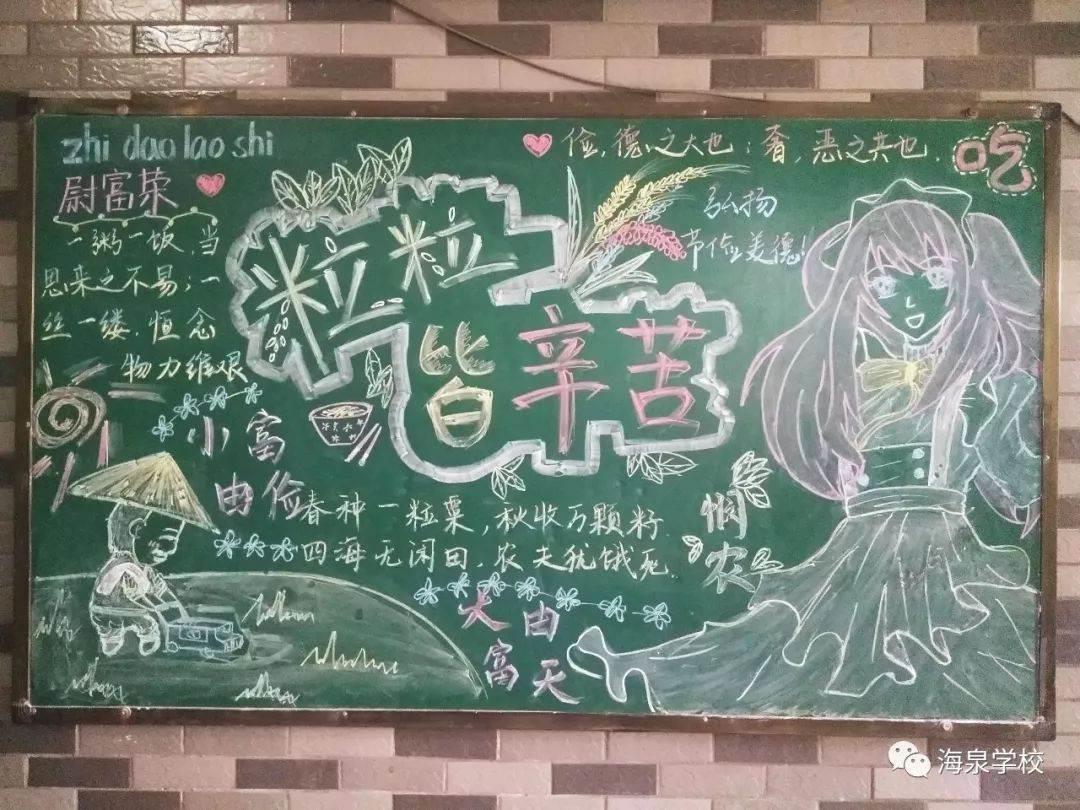 zhi dao lao shi
尉富荣
一粥一饭,当
思来之不易;一
丝一缕,恒念
物力维艰
俭,德之大也:奢,恶之共也.
吃
弘扬
节俭美德!
粒粒
皆辛苦
小富
由俭
悯农
春种一粒粟,秋收万颗籽.
四海无闲田,农夫犹饿死.
大由
富天
海泉学校